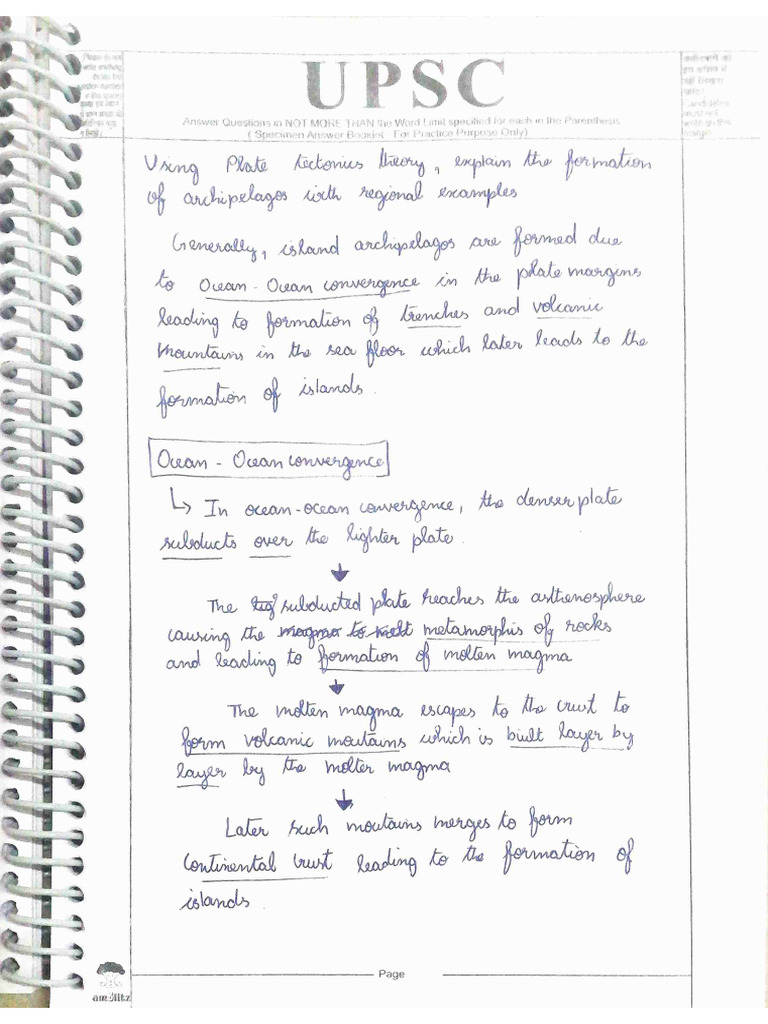 UPSC
Answer Questions in NOT MORE THAN the Word Limit specified for each in the Parenthesis
( Specimen Answer Booklet For Practice Purpose Only)
Using Plate tectonics theory, explain the formation
of archipelagos with regional examples
Generally, island archipelagos are formed due
to Ocean - Ocean convergence in the plate margins
leading to formation of trenches and volcanic
Mountains in the sea floor which later leads to the
formation of islands.
Ocean - Ocean convergence
↳ In ocean-ocean convergence, the denser plate
subducts over the lighter plate.
The subducted plate reaches the asthenosphere
causing the magma to melt metamorphis of rocks
and leading to formation of molten magma
The molten magma escapes to the crust to
form volcanic moutains which is built layer by
layer by the molter magma
Later such moutains merges to form
continental crust leading to the formation of
islands.
Page